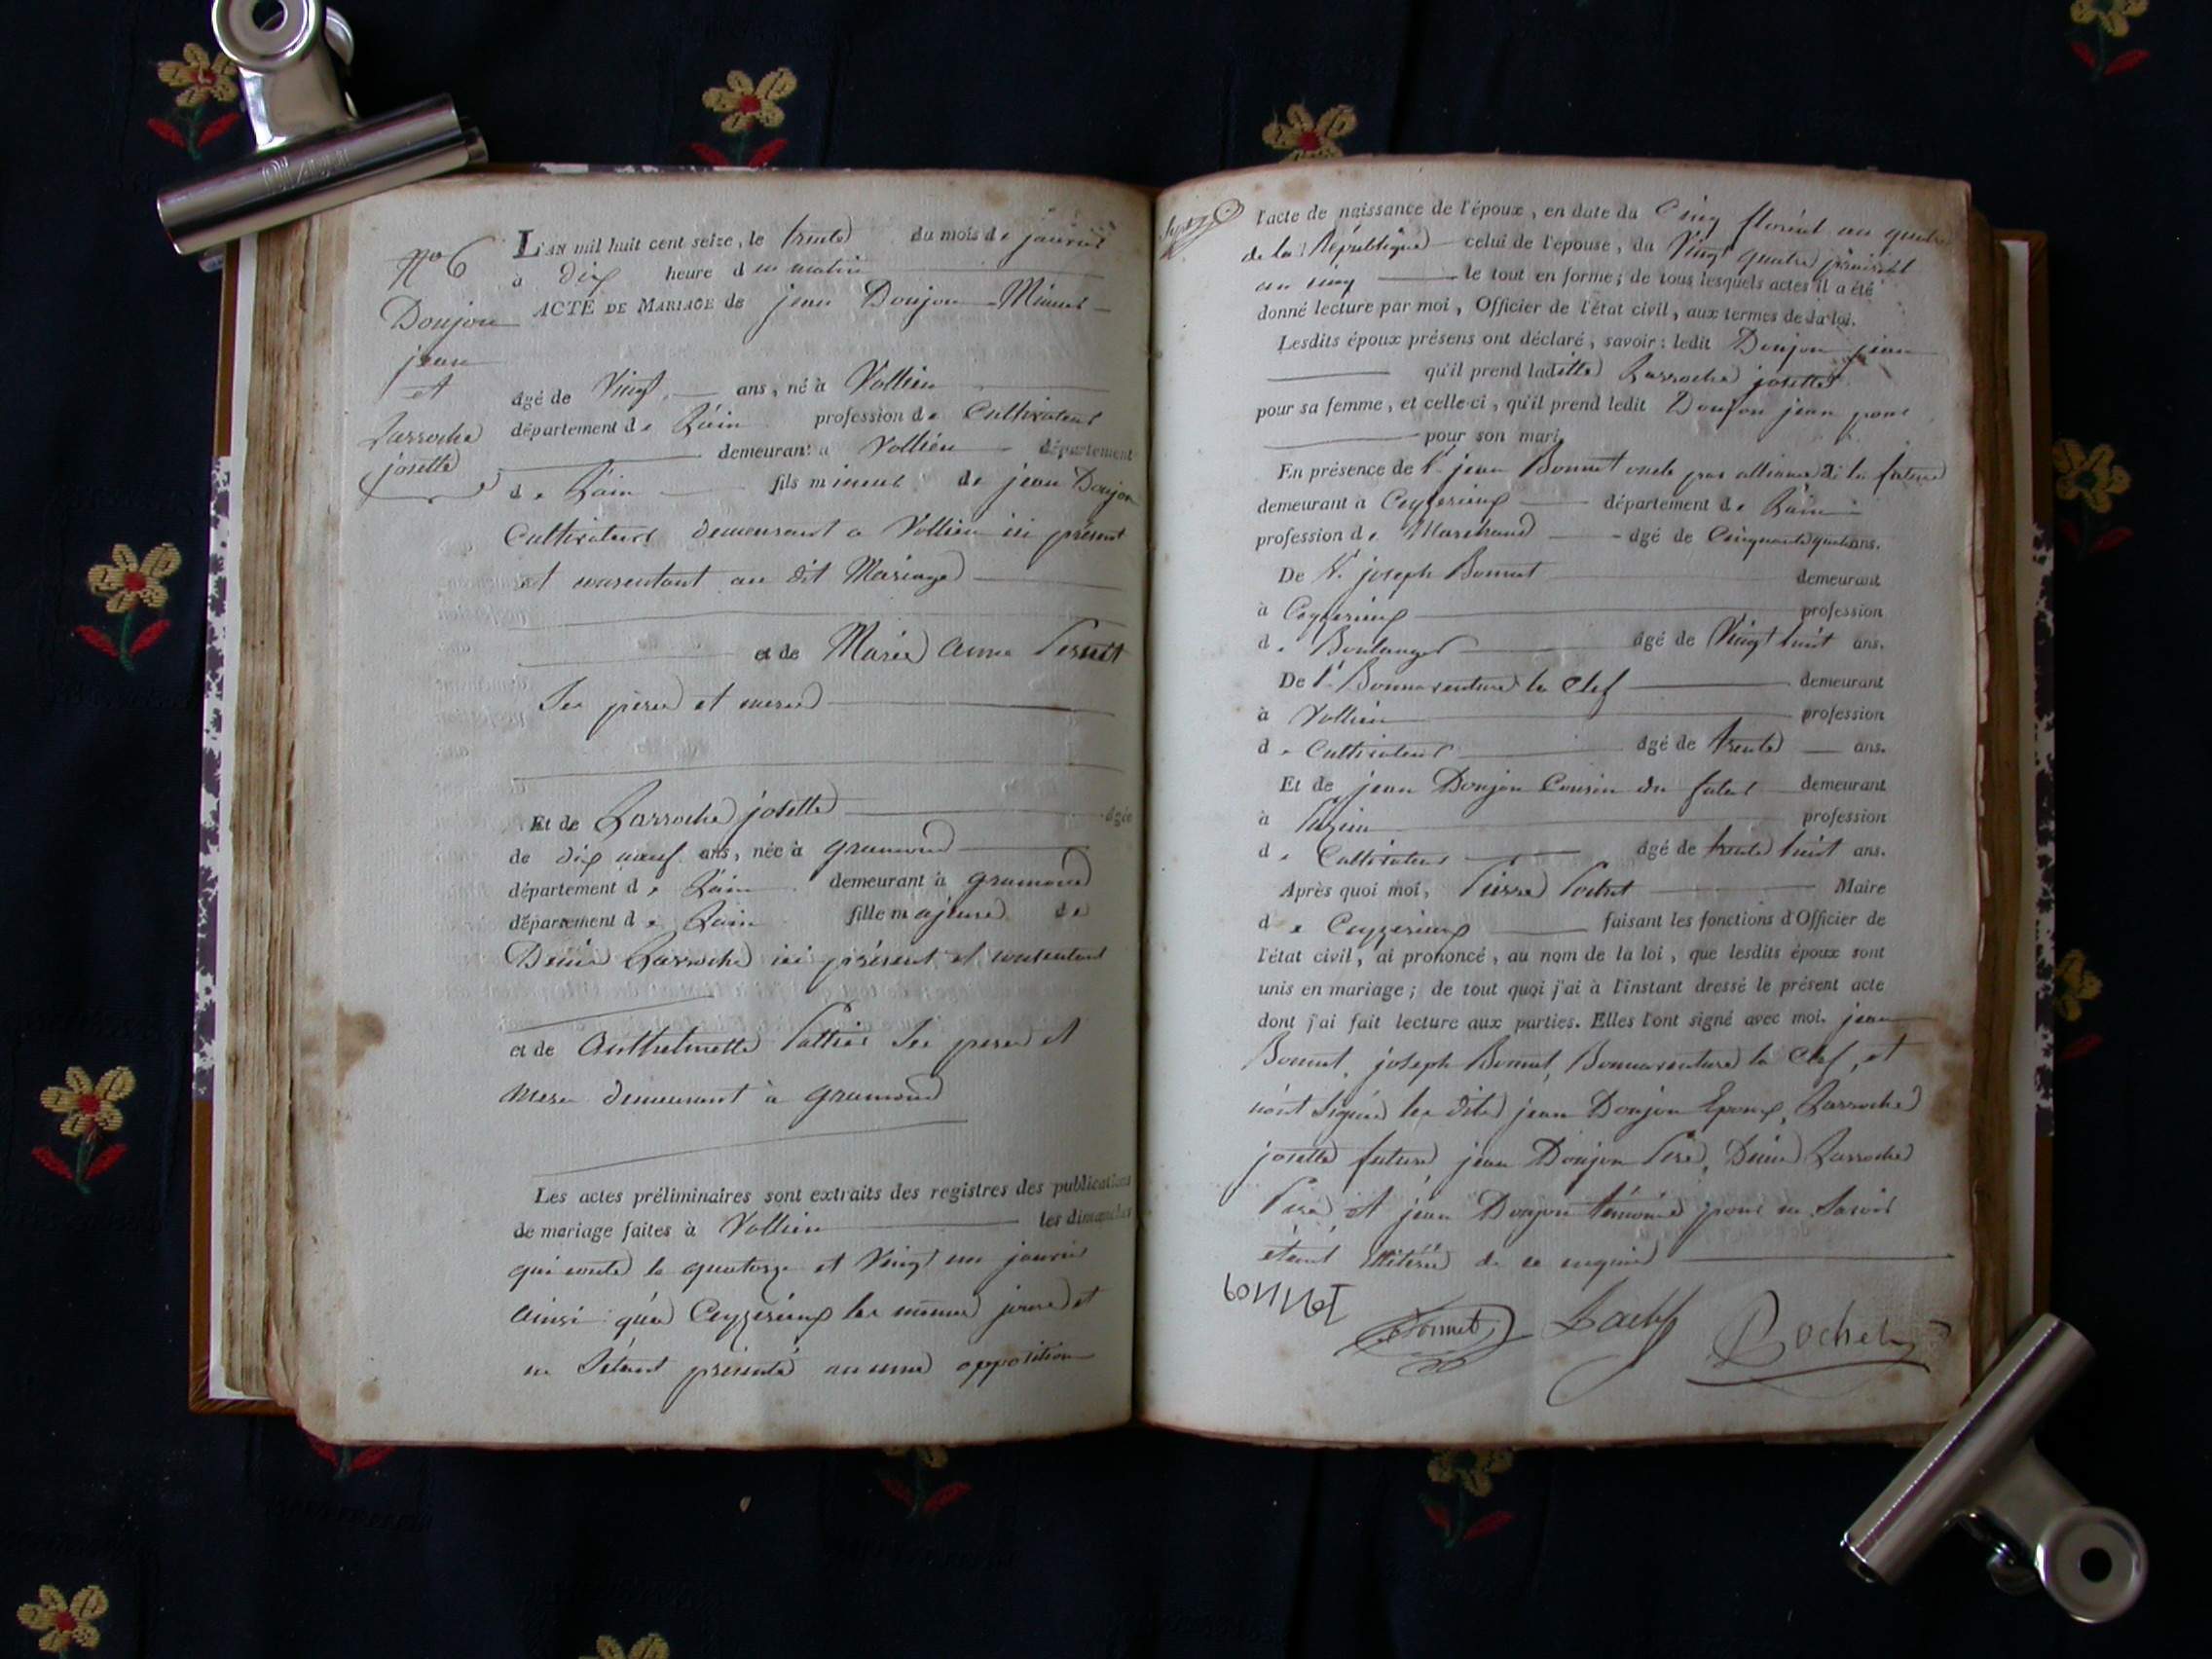 N° 6
Doujon
jean
et
Larroche
josette
L'AN mil huit cent seize, le trente du mois de janvier
à dix heure du matin
ACTE DE MARIAGE de jean Doujon Mineur
âgé de Vingt ans, né à Vollien
département de L'ain profession de Cultivateur
demeurant à Vollien département
de L'ain fils mineur de jean Doujon
Cultivateur demeurant a Vollien ici présent
et consentant au dit Mariage
et de Marie Anne
Ses pere et mere
Et de Larroche josette âgée
de dix neuf ans, née à gramond
département de L'ain demeurant à gramond
département de L'ain fille majeure de
Denis Larroche ici présent et consentant
et de Anthelmette Pattier Ses pere et
mere demeurant à gramond
Les actes préliminaires sont extraits des registres des publications
de mariage faites à Vollien les dimanches
qui conte le quatorze et Vingt un janvier
ainsi qu'a Ceyzerieux les mêmes jours et
ne S'étant présenté aucune opposition
l'acte de naissance de l'époux, en date du Cinq floréal an quatre
de la République celui de l'épouse, du Vingt quatre prairial
an cinq le tout en forme; de tous lesquels actes il a été
donné lecture par moi, Officier de l'état civil, aux termes de la loi.
Lesdits époux présens ont déclaré, savoir: ledit Doujon jean
qu'il prend laditte Larroche josette
pour sa femme, et celle-ci, qu'il prend ledit Doujon jean pour
pour son mari.
En présence de Sr. jean Bonnet oncle par alliance de la future
demeurant à Ceyzerieux département de L'ain
profession de Marchand âgé de Cinquante quatre ans.
De Sr. joseph Bonnet demeurant
à Ceyzerieux profession
de Boulanger âgé de Vingt huit ans.
De Sr. Bonnaventure la Clef demeurant
à Vollien profession
de Cultivateur âgé de trente ans.
Et de jean Doujon Cousin du futur demeurant
à profession
de Cultivateur âgé de trente huit ans.
Après quoi moi, Pierre Maire
de Ceyzerieux faisant les fonctions d'Officier de
l'état civil, ai prononcé, au nom de la loi, que lesdits époux sont
unis en mariage; de tout quoi j'ai à l'instant dressé le présent acte
dont j'ai fait lecture aux parties. Elles l'ont signé avec moi. jean
Bonnet, joseph Bonnet, Bonnaventure la Clef, et
n'ont signé les dits jean Doujon Epoux, Larroche
josette future jean Doujon Pere, Denis Larroche
Pere et jean Doujon témoins pour ne Savoir
étant de ce enquis
bonnet
Bonnet Laclef Rochet